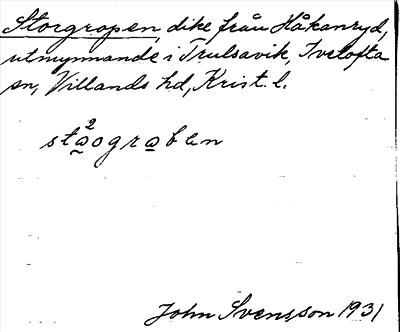 Storgropen, dike från Håkanryd,
utmynnande i Trulsavik, Ivetofta
sn, Villands hd, Krist. l.
John Svensson 1931